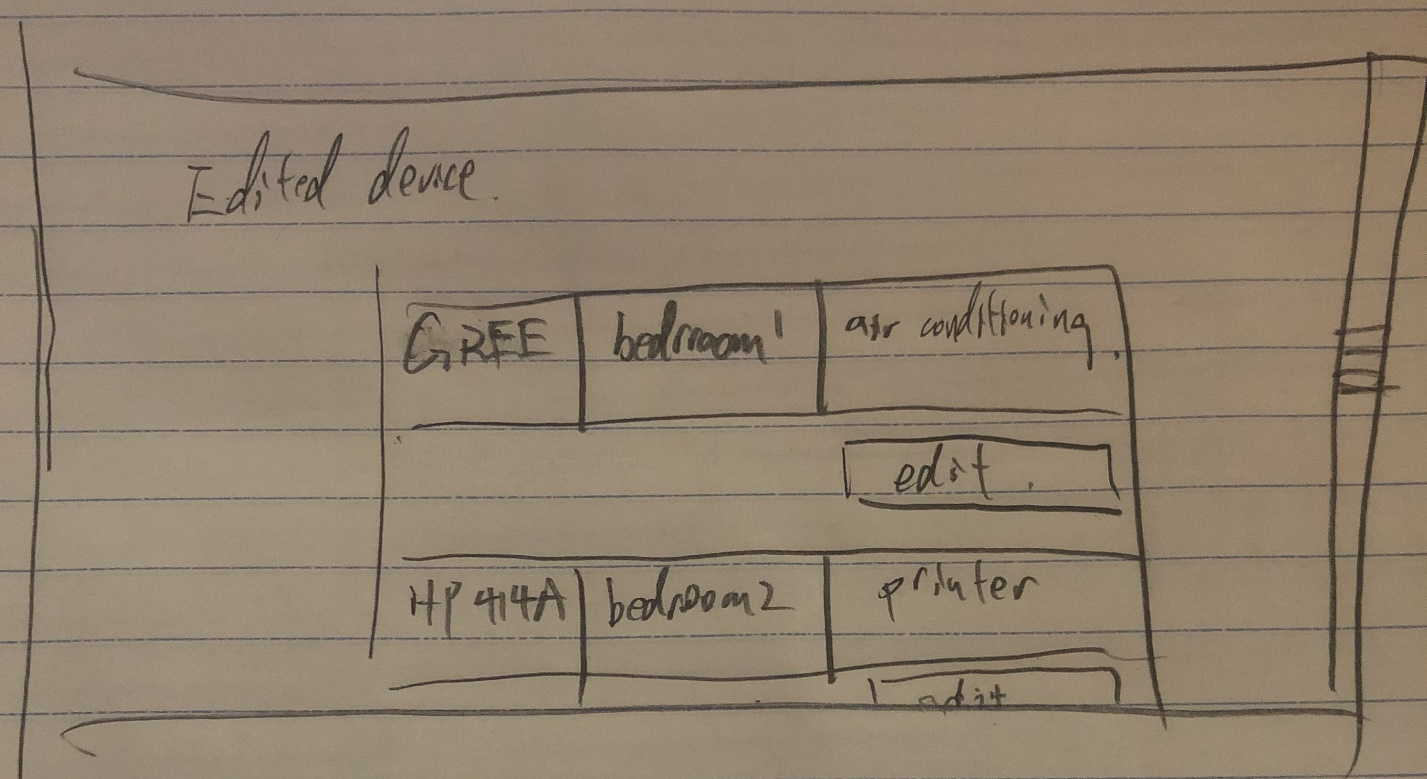 Edited device.
GREE bedrooom1 air conditioning.
edit.
HP 414A bedroom2 printer
edit